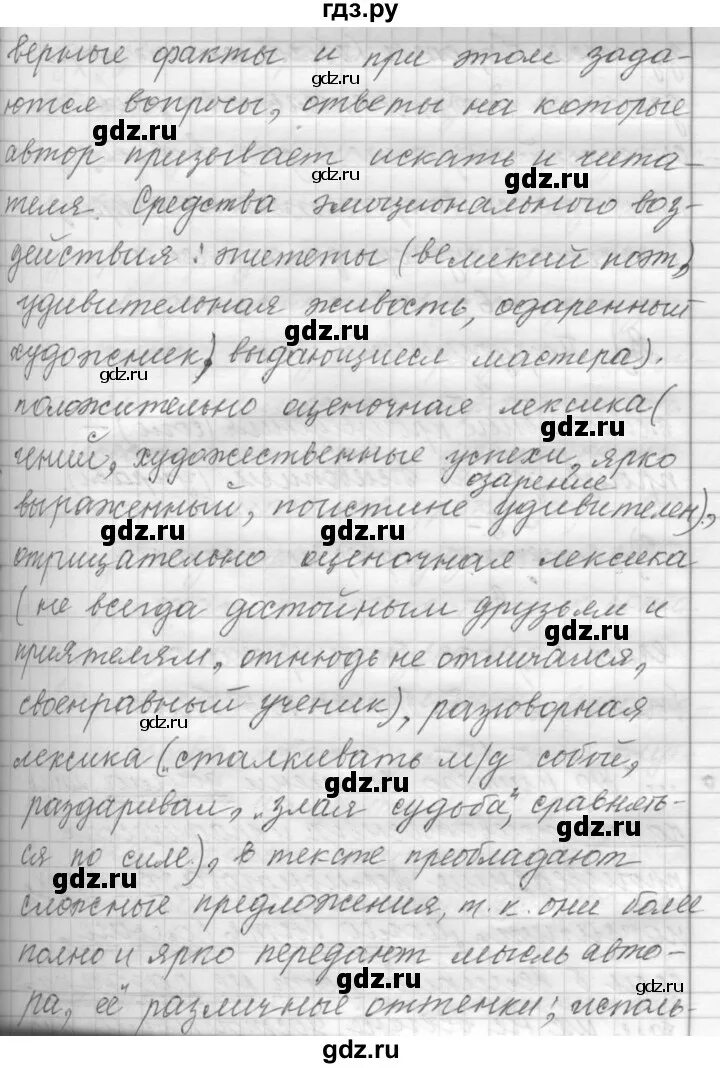 гдз.ру
верные факты и при этом зада-
gdz.ru
ются вопросы, ответы на которые
gdz.ru
автор призывает искать и чита-
gdz.ru
gdz.ru
теля. Средства эмоционального воз-
действия: эпитеты (великий поэт,
gdz.ru
удивительная живость, одаренный
gdz.ru
художник, выдающиеся мастера).
gdz.ru
положительно оценочная лексика(
gdz.ru
гений, художественные успехи, ярко
озарение
выраженный, поистине удивителен),
gdz.ru
gdz.ru
отрицательно оценочная лексика
(не всегда достойным друзьям и
gdz.ru
приятелям, отнюдь не отличался,
своенравный ученик), разговорная
gdz.ru
лексика („сталкивать м/д собой,
gdz.ru
раздаривал, „злая судьба", сравнять-
gdz.ru
ся по силе), в тексте преобладают
gdz.ru
сложные предложения, т.к. они более
полно и ярко передают мысль авто-
gdz.ru
gdz.ru
ра, её различные оттенки; исполь-
gdz.ru